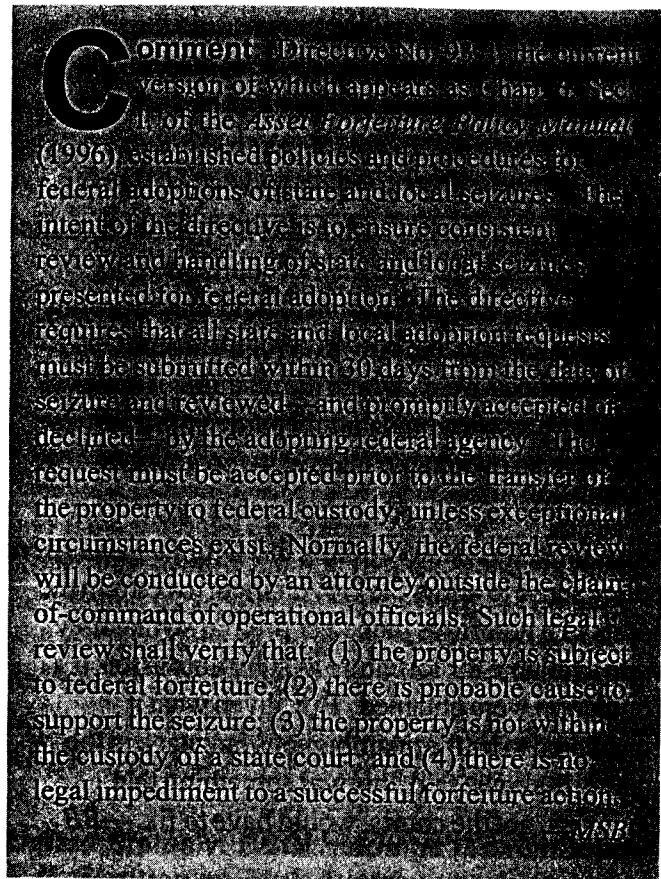 Comment: Directive No. the current
version of which appears as Chap. 6, Sec.
I, of the Asset Forfeiture Policy Manual
(1996) established policies and procedures for
federal adoptions of state and local seizures. The
intent of the directive is to ensure consistent
review and handling of state and local seizures
presented for federal adoption. The directive
requires that all state and local adoption requests
must be submitted within 30 days from the date of
seizure and reviewed—and promptly accepted or
declined—by the adopting federal agency. The
request must be accepted prior to the transfer of
the property to federal custody, unless exceptional
circumstances exist. Normally, the federal review
will be conducted by an attorney outside the chain-
of-command of operational officials. Such legal
review shall verify that: (1) the property is subject
to federal forfeiture, (2) there is probable cause to
support the seizure, (3) the property is not within
the custody of a state court, and (4) there is no
legal impediment to a successful forfeiture action.
MSB